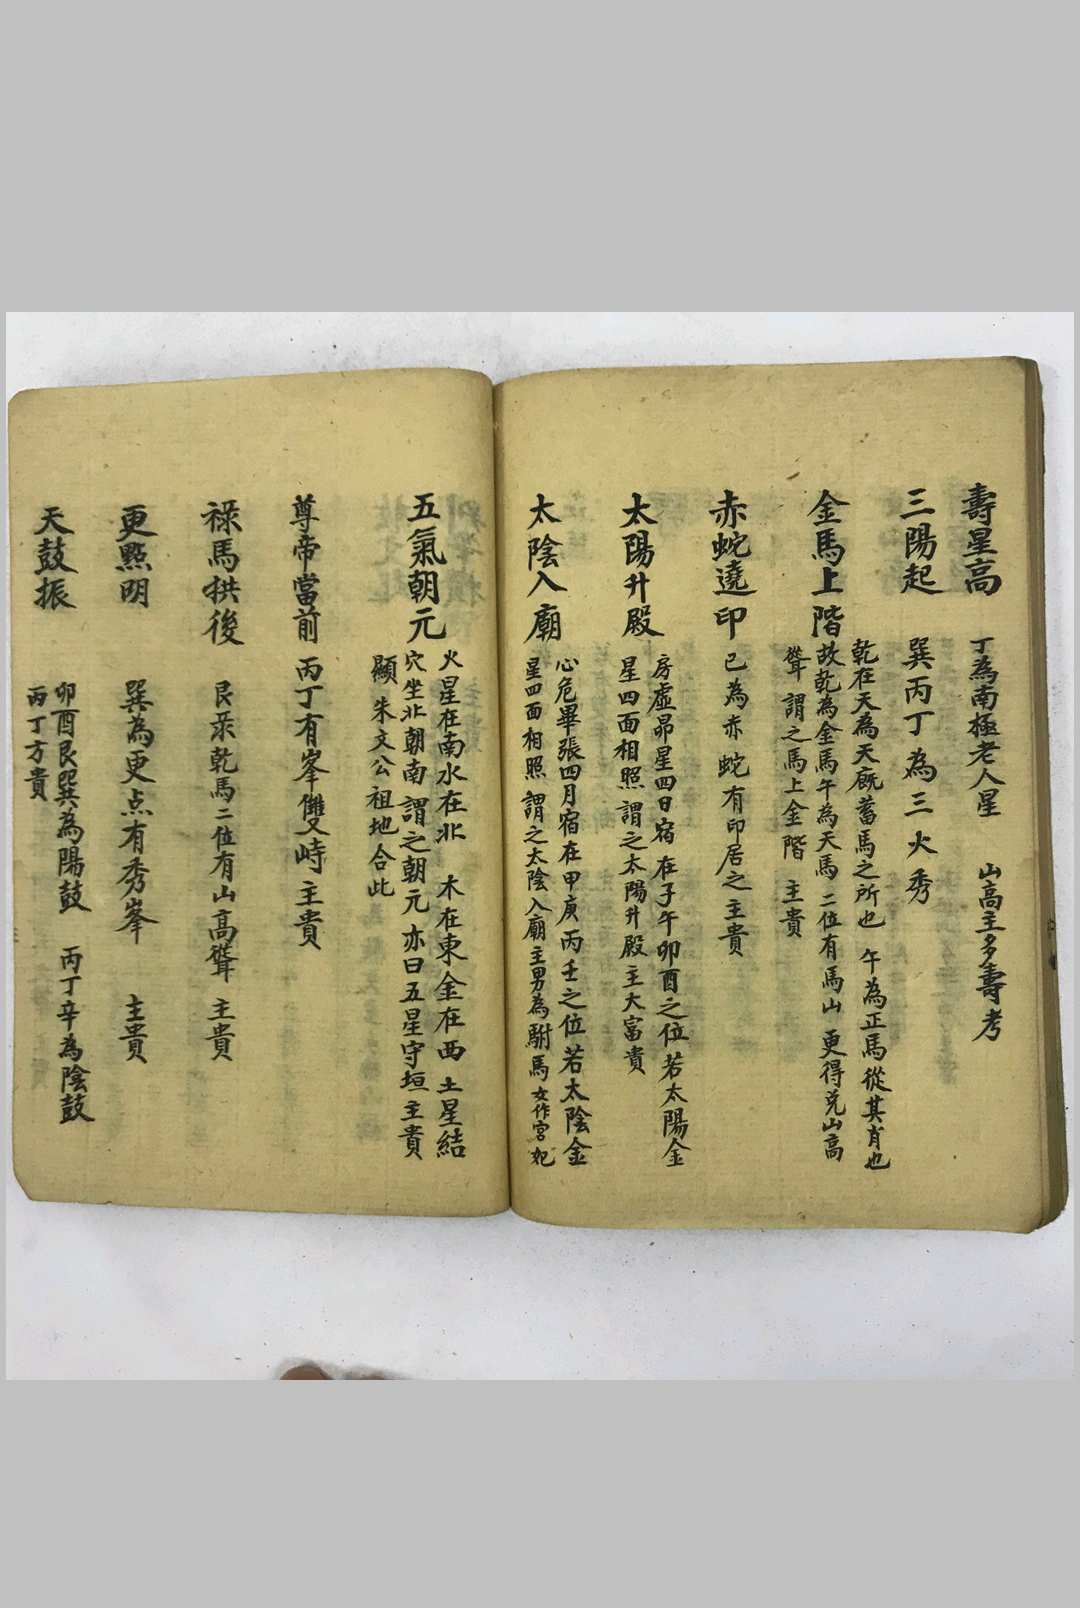 壽星高 丁為南極老人星 山高主多壽考
三陽起 巽丙丁為三火秀
金馬上階 乾在天為天廐蓄馬之所也 午為正馬從其肖也
故乾為金馬午為天馬 二位有馬山 更得兌山高
聳 謂之馬上金階 主貴
赤蛇遶印 巳為赤蛇有印居之主貴
太陽升殿 房虛昴星四日宿 在子午卯酉之位若太陽金
星四面相照 謂之太陽升殿主大富貴
太陰入廟 心危畢張四月宿在甲庚丙壬之位若太陰金
星四面相照 謂之太陰入廟主男為駙馬女作宮妃
五氣朝元 火星在南水在北 木在東金在西 土星結
穴坐北朝南謂之朝元亦曰五星守垣主貴
顯 朱文公祖地合此
尊帝當前 丙丁有峯雙峙主貴
祿馬拱後 艮祿乾馬二位有山高聳 主貴
更點明 巽為更点有秀峯 主貴
天鼓振 卯酉艮巽為陽鼓 丙丁辛為陰鼓
丙丁方貴